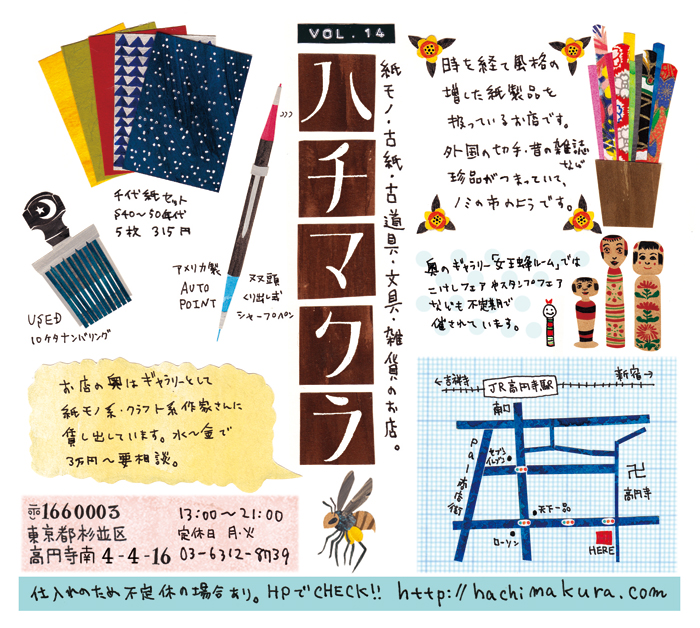 VOL. 14
ハチマクラ
紙モノ・古紙・古道具・文具・雑貨のお店。
千代紙セット
S40〜50年代
5枚 315円
USED
10ケタナンバリング
アメリカ製
AUTO
POINT
双頭
くり出し式
シャープペン
時を経て風格の
増した紙製品を
扱っているお店です。
外国の切手・昔の雑誌など
珍品がつまっていて、
ノミの市のようです。
奥のギャラリー「女王蜂ルーム」では
こけしフェアやスタンプフェア
なども不定期で
催されています。
お店の奥はギャラリーとして
紙モノ系・クラフト系作家さんに
貸し出しています。水〜金で
3万円〜要相談。
←吉祥寺
新宿→
JR高円寺駅
南口
セブン
イレブン
Pal商店街
卍
高円寺
天下一品
ローソン
HERE
〒1660003
東京都杉並区
高円寺南4-4-16
13:00〜21:00
定休日 月・火
03-6312-8739
仕入れのため不定休の場合あり。HPでCHECK!! http://hachimakura.com